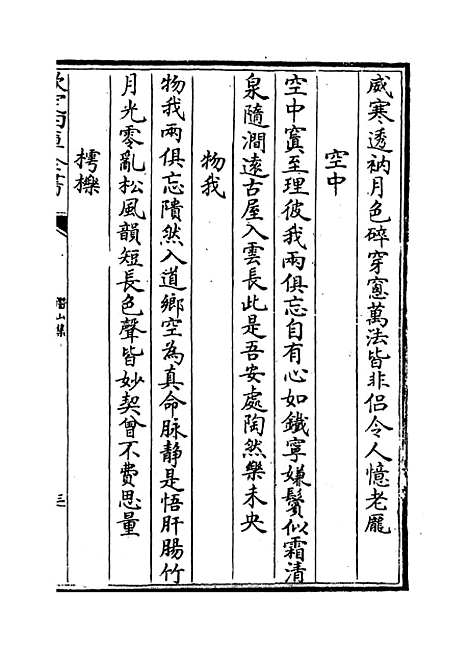 威寒透衲月色碎穿窻萬法皆非侣令人憶老龎
空中
空中寘至理彼我兩俱忘自有心如鐵寧嫌鬢似霜清
泉隨澗遠古屋入雲長此是吾安處陶然樂未央
物我
物我兩俱忘隤然入道鄉空為真命脉静是悟肝腸竹
月光零亂松風韻短長色聲皆妙契曾不費思量
樗櫟
欽定四庫全書
潛山集
三